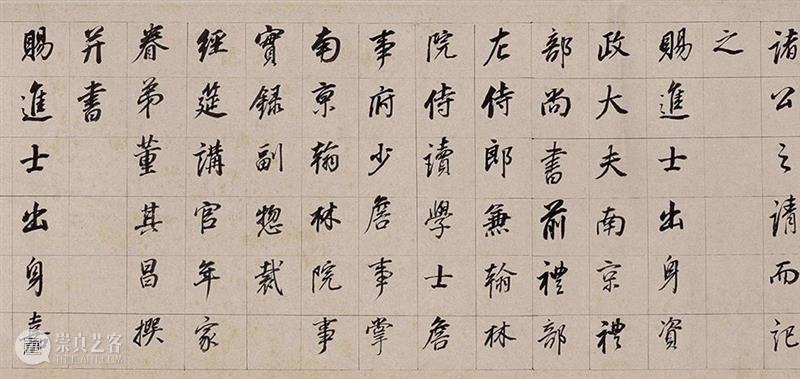 諸公之請而記
之
賜進士出身資
政大夫南京禮
部尚書前禮部
左侍郎兼翰林
院侍讀學士詹
事府少詹事掌
南京翰林院事
實錄副惣裁
經筵講官年家
眷弟董其昌撰
并書
賜進士出身嘉
崇真艺客